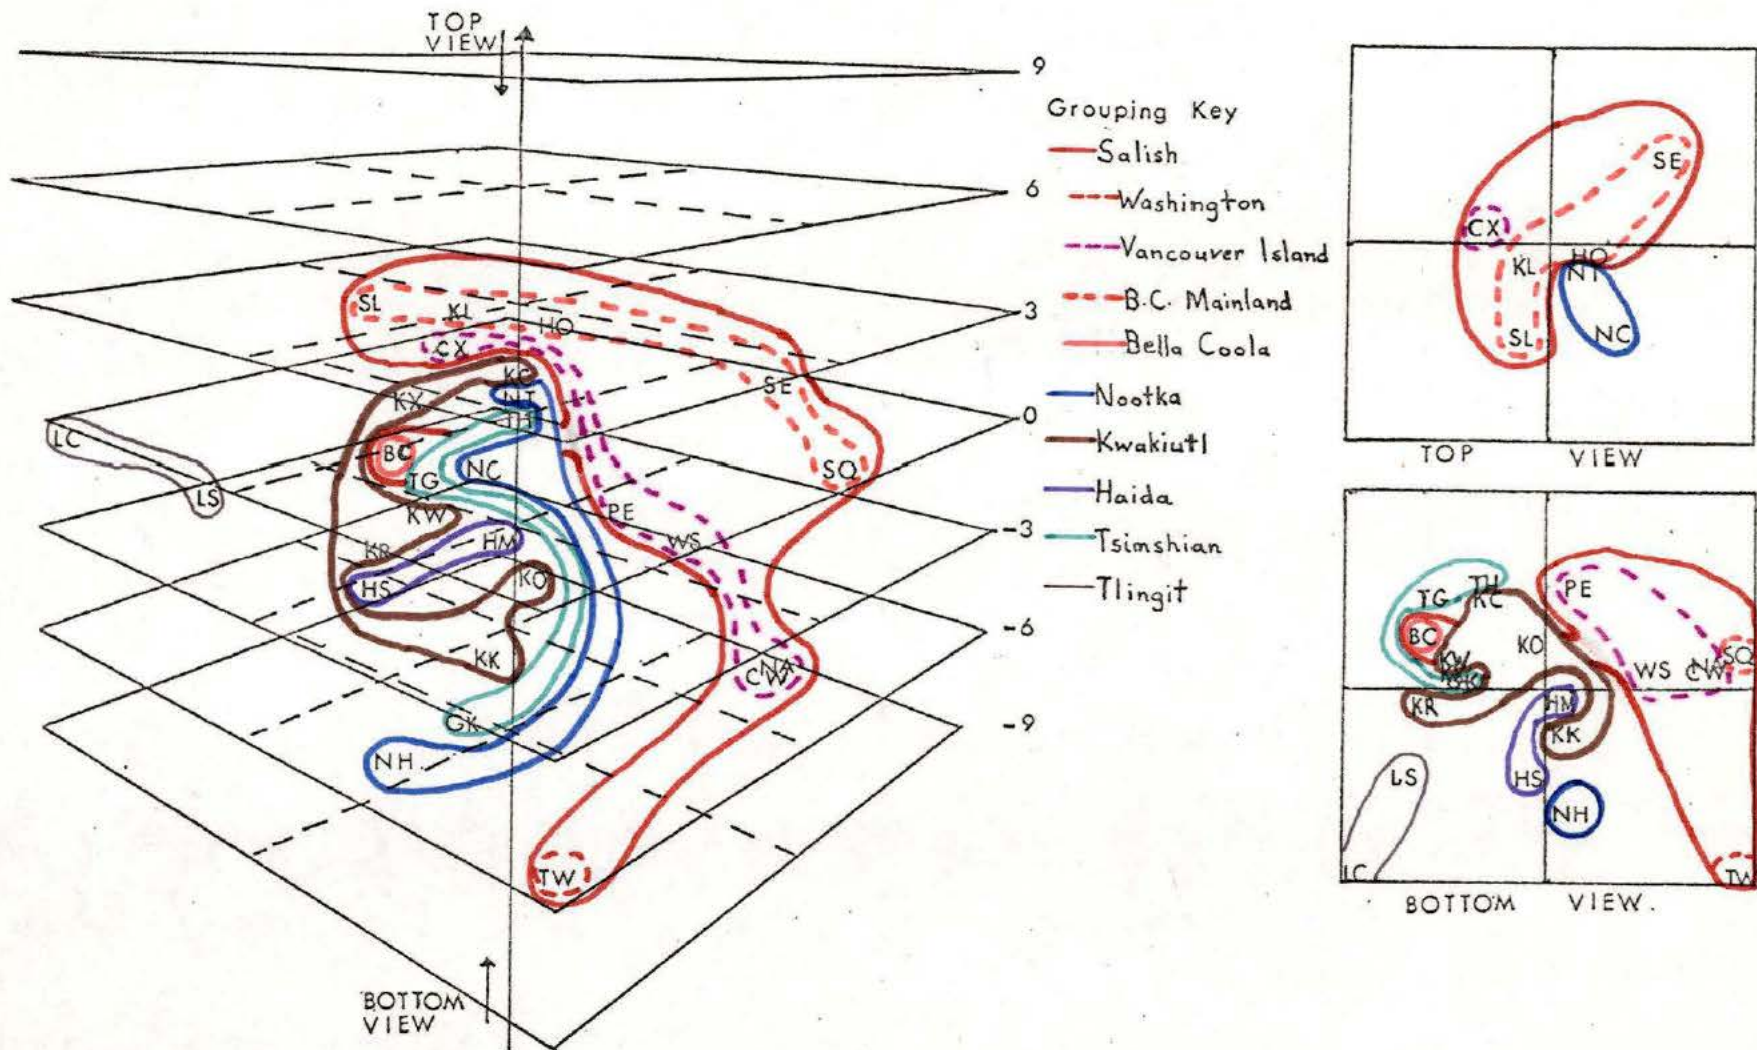 TOP
VIEW
9
6
3
0
-3
-6
-9
SL
KL
HO
CX
SE
KC
KX
NT
TH
LC
BC
SQ
TG
NC
LS
KW
PE
HM
WS
KR
HS
KO
KK
NA
CW
GK
NH
TW
BOTTOM
VIEW
Grouping Key
Salish
Washington
Vancouver Island
B.C. Mainland
Bella Coola
Nootka
Kwakiutl
Haida
Tsimshian
Tlingit
SE
CX
KL
HO
NT
NC
SL
TOP VIEW
TH
PE
TG
KC
BC
KO
SQ
KW
WS
CW
KR
HM
KK
LS
HS
NH
LC
TW
BOTTOM VIEW.